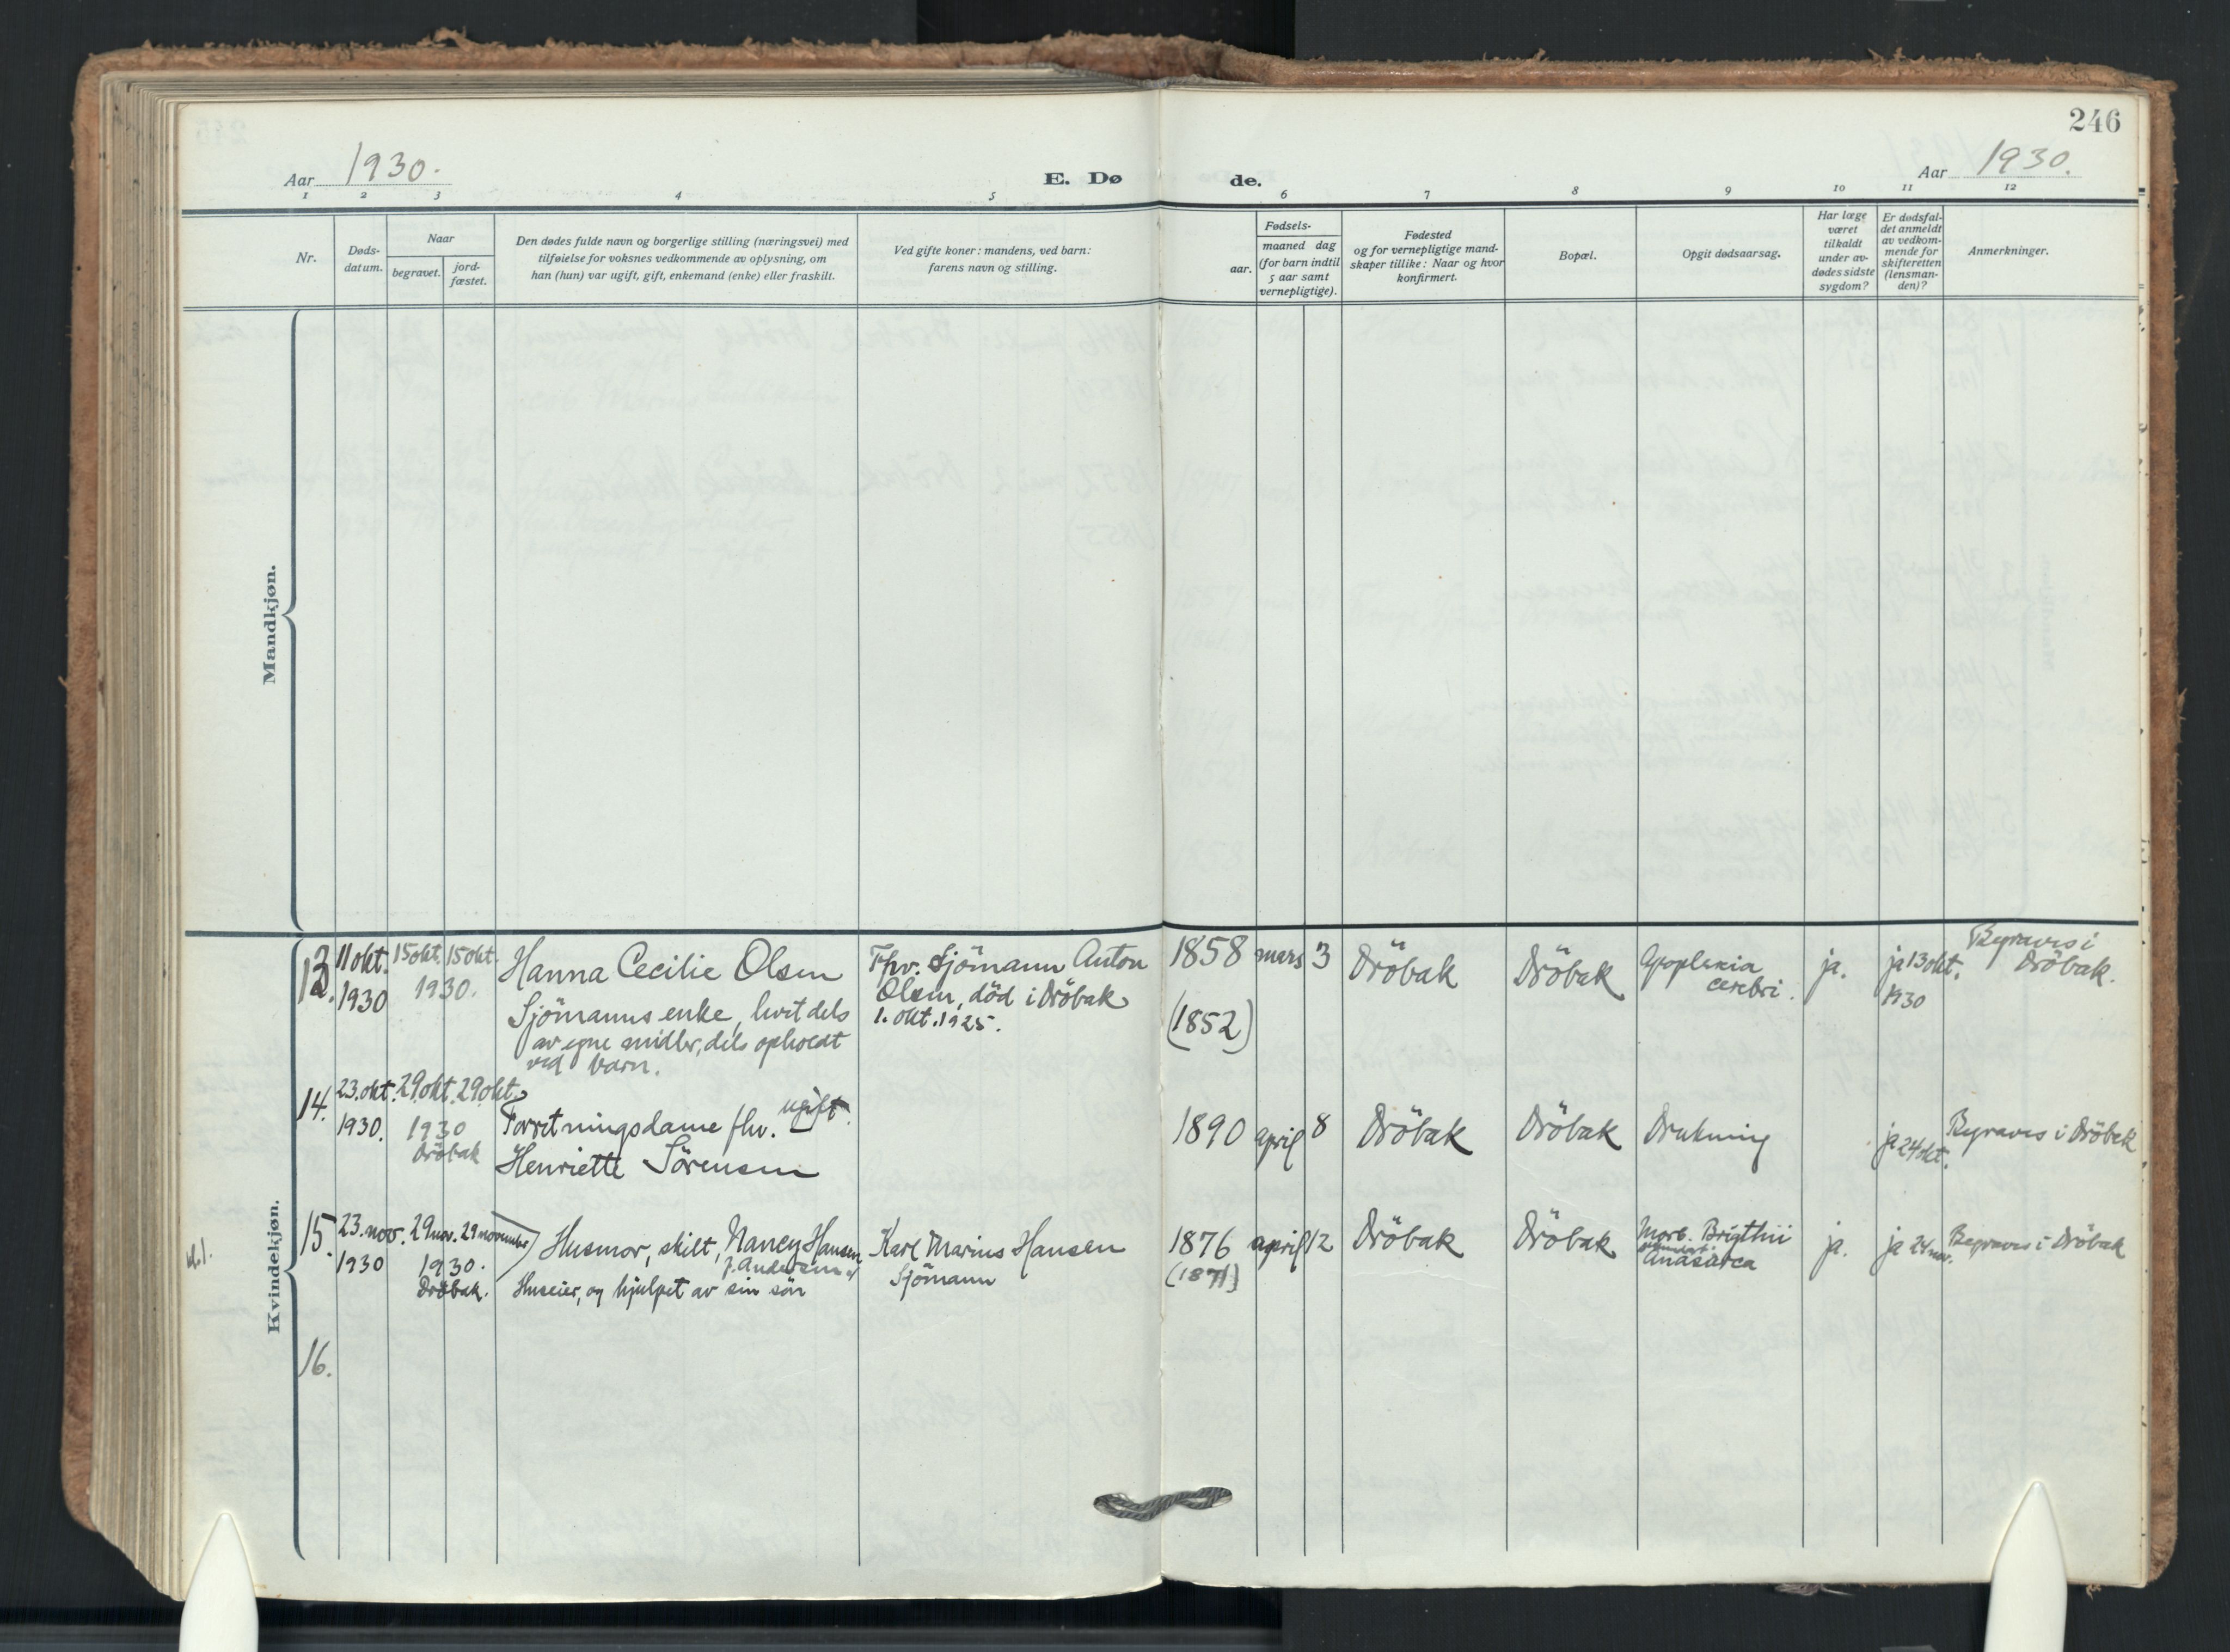 246
Aar 1930.
E. Dø
de.
Aar 1930.
1 2 3 4 5 6 7 8 9 10 11 12
Nr.
Døds-
datum.
Naar
begravet.
jord-
fæstet.
Den dødes fulde navn og borgerlige stilling (næringsvei) med
tilføielse for voksnes vedkommende av oplysning, om
han (hun) var ugift, gift, enkemand (enke) eller fraskilt.
Ved gifte koner: mandens, ved barn:
farens navn og stilling.
Fødsels-
aar.
maaned dag
(for barn indtil
5 aar samt
vernepligtige).
Fødested
og for vernepligtige mand-
skaper tillike: Naar og hvor
konfirmert.
Bopæl.
Opgit dødsaarsag.
Har læge
været
tilkaldt
under av-
dødes sidste
sygdom?
Er dødsfal-
det anmeldt
av vedkom-
mende for
skifteretten
(lensman-
den)?
Anmerkninger.
Mandkjøn.
Kvindekjøn.
13.
11 okt.
1930
15 okt. 15 okt.
1930.
Hanna Cecilie Olsen
Sjömanns enke, levet dels
av egne midler, dels opholdt
ved barn.
Fhv. Sjömann Anton
Olsen, död i Dröbak
1. okt. 1925.
1858 mars 3
(1852)
Dröbak
Dröbak
Apoplexia
cerebri.
ja.
ja 13 okt.
1930
Begraves i
Dröbak.
14.
23. okt.
1930.
29 okt. 29 okt.
1930
Dröbak
Forretningsdame fhv. ugift.
Henriette Sörensen
1890 april 8
Dröbak
Dröbak
Drukning
ja 24 okt.
Begraves i Dröbak
15.
23. nov.
1930
29 nov. 29 november
1930.
Dröbak.
Husmor, skilt, Nancy Hansen
f. Andersen
Huseier, og hjulpet av sin sön
Karl Marius Hansen
Sjömann
1876 april 12
(1871)
Dröbak
Dröbak
Morb. Brigthii
Anasarca
ja.
ja 24 nov.
Begraves i Dröbak
16.